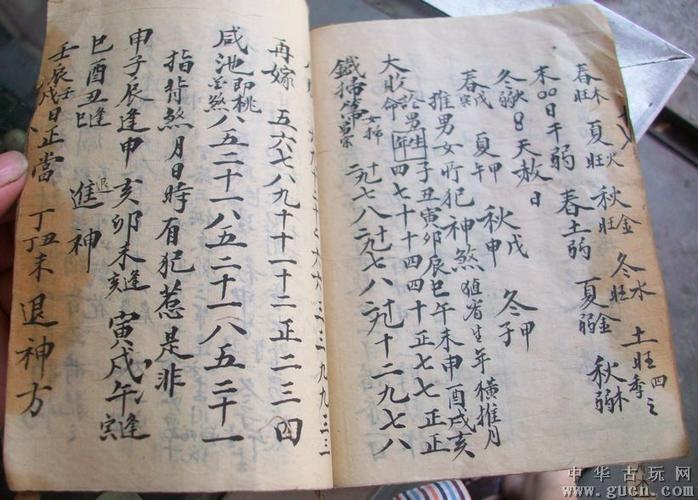 春旺木 夏旺火 秋旺金 冬旺水 土旺四季之
末 日干弱 春土弱 夏弱金 秋弱木
冬 天赦日
春戊寅 夏甲午 秋戊申 冬甲子
推男女所犯神煞 直看生年橫推月
論男女生年 子丑寅卯辰巳午未申酉戌亥
大敗命 四七十十四四十正七七正正
鐵掃箒
再嫁 五六七八九十十一十二正二三四
咸池即桃花煞 八五二十一八五二十一八五二十一
指背煞月日時有犯惹是非
申子辰逢申 亥卯未逢亥 寅戌午逢寅
巳酉丑逢巳 進神
壬辰壬戌日正當 丁丑丁未退神方
中华古玩网
www.gucn.com